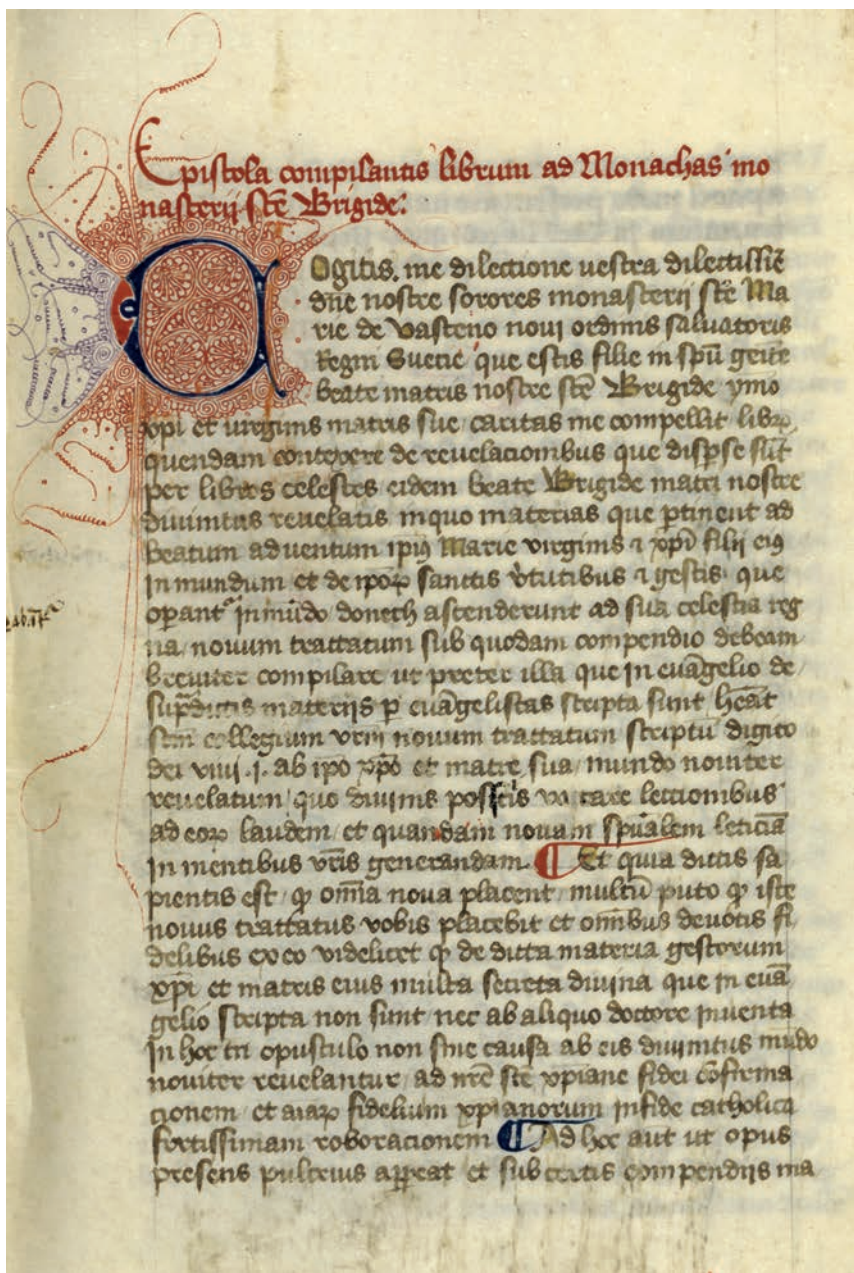 Epistola compilantis librum ad Monachas mo
nasterij scē Brigide:
Cogitis. me dilectione uestra dilectissīē
dn̄e nostre sorores monasterij scē Ma
rie de vasteno noui ordinis saluatoris
Regni Suecie que estis filie in spū genīte
beate matris nostre scē Brigide ymo
xp̄i et uirginis matris sue caritas me compellit libꝝ
quendam contexere de reuelacionibus que disp̄se sūt
per libros celestes eidem beate Brigide matri nostre
diuinitus reuelatis inquo materias que ꝑtinent ad
beatum aduentum ip̄iꝰ Marie virginis ⁊ xp̄i filij eiꝰ
in mundum et de ip̄oꝝ sanctis v̓tutibus ⁊ gestis que
oꝑant᷑ in mūdo donech ascenderunt ad sua celestia reg
na nouum tractatum sub quodam compendio debeam
breuiter compilare ut preter illa que in euāgelio de
sup̄dictis materijs ꝑ euāgelistas scripta sunt hēat
scm̄ collegium vrm̄ nouum tractatum scriptū digito
dei viui .i. ab ip̄o xp̄o et matre sua mundo nouiter
reuelatum quo diuinis possitis vacare lectionibus
ad eoꝝ laudem et quandam nouam spūalem leticiā
in mentibus vr̄is generandam. ¶ Et quia dictis sa
pientis est ꝙ om̄ia noua placent multū puto ꝙ iste
nouus tractatus vobis placebit et om̄ibus deuotis fi
delibus ex eo videlicet ꝙ de dicta materia gestorum
xp̄i et matris eius multa secreta diuina que in euā
gelio scripta non sunt nec ab aliquo doctore inuenta
in hoc tn̄ opusculo non sine causa ab eis diuinitus mūdo
nouiter reuelantur ad nr̄e scē xp̄iane fidei cōfirma
cionem et aīaꝝ fidelium xp̄ianorum infide catholica
fortissimam roboracionem ¶ Ad hec aūt ut opus
presens pulcrius aꝑeat et sub certis compendijs ma